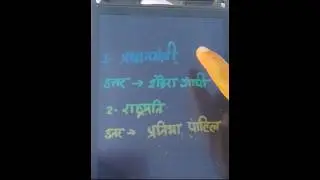 1- प्रधानमंत्री
उत्तर → इंदिरा गांधी
2- राष्ट्रपति
उत्तर → प्रतिभा पाटिल